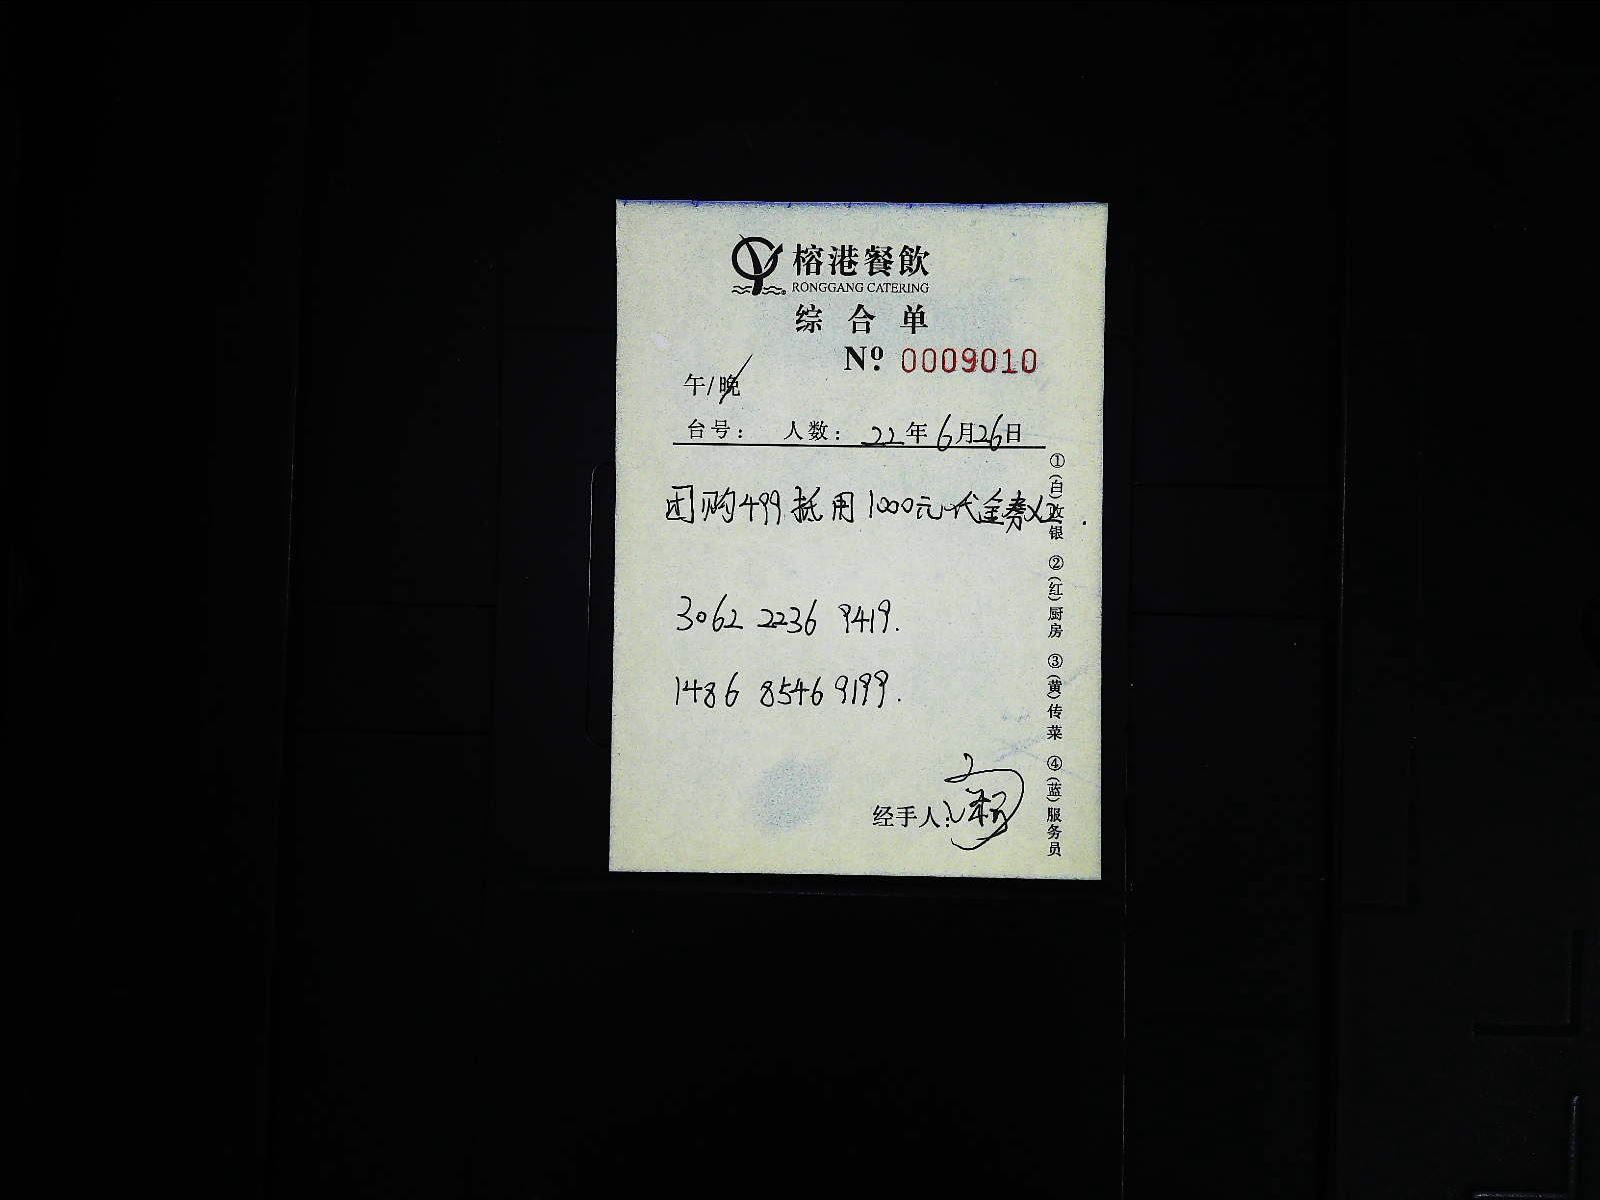 榕港餐飲
RONGGANG CATERING
综合单
Nº. 0009010
午/晚
台号： 人数： 22年6月26日
团购499抵用1000元代金券x2.
3062 2236 9419.
1486 8546 9199.
经手人：
①(白)收银 ②(红)厨房 ③(黄)传菜 ④(蓝)服务员